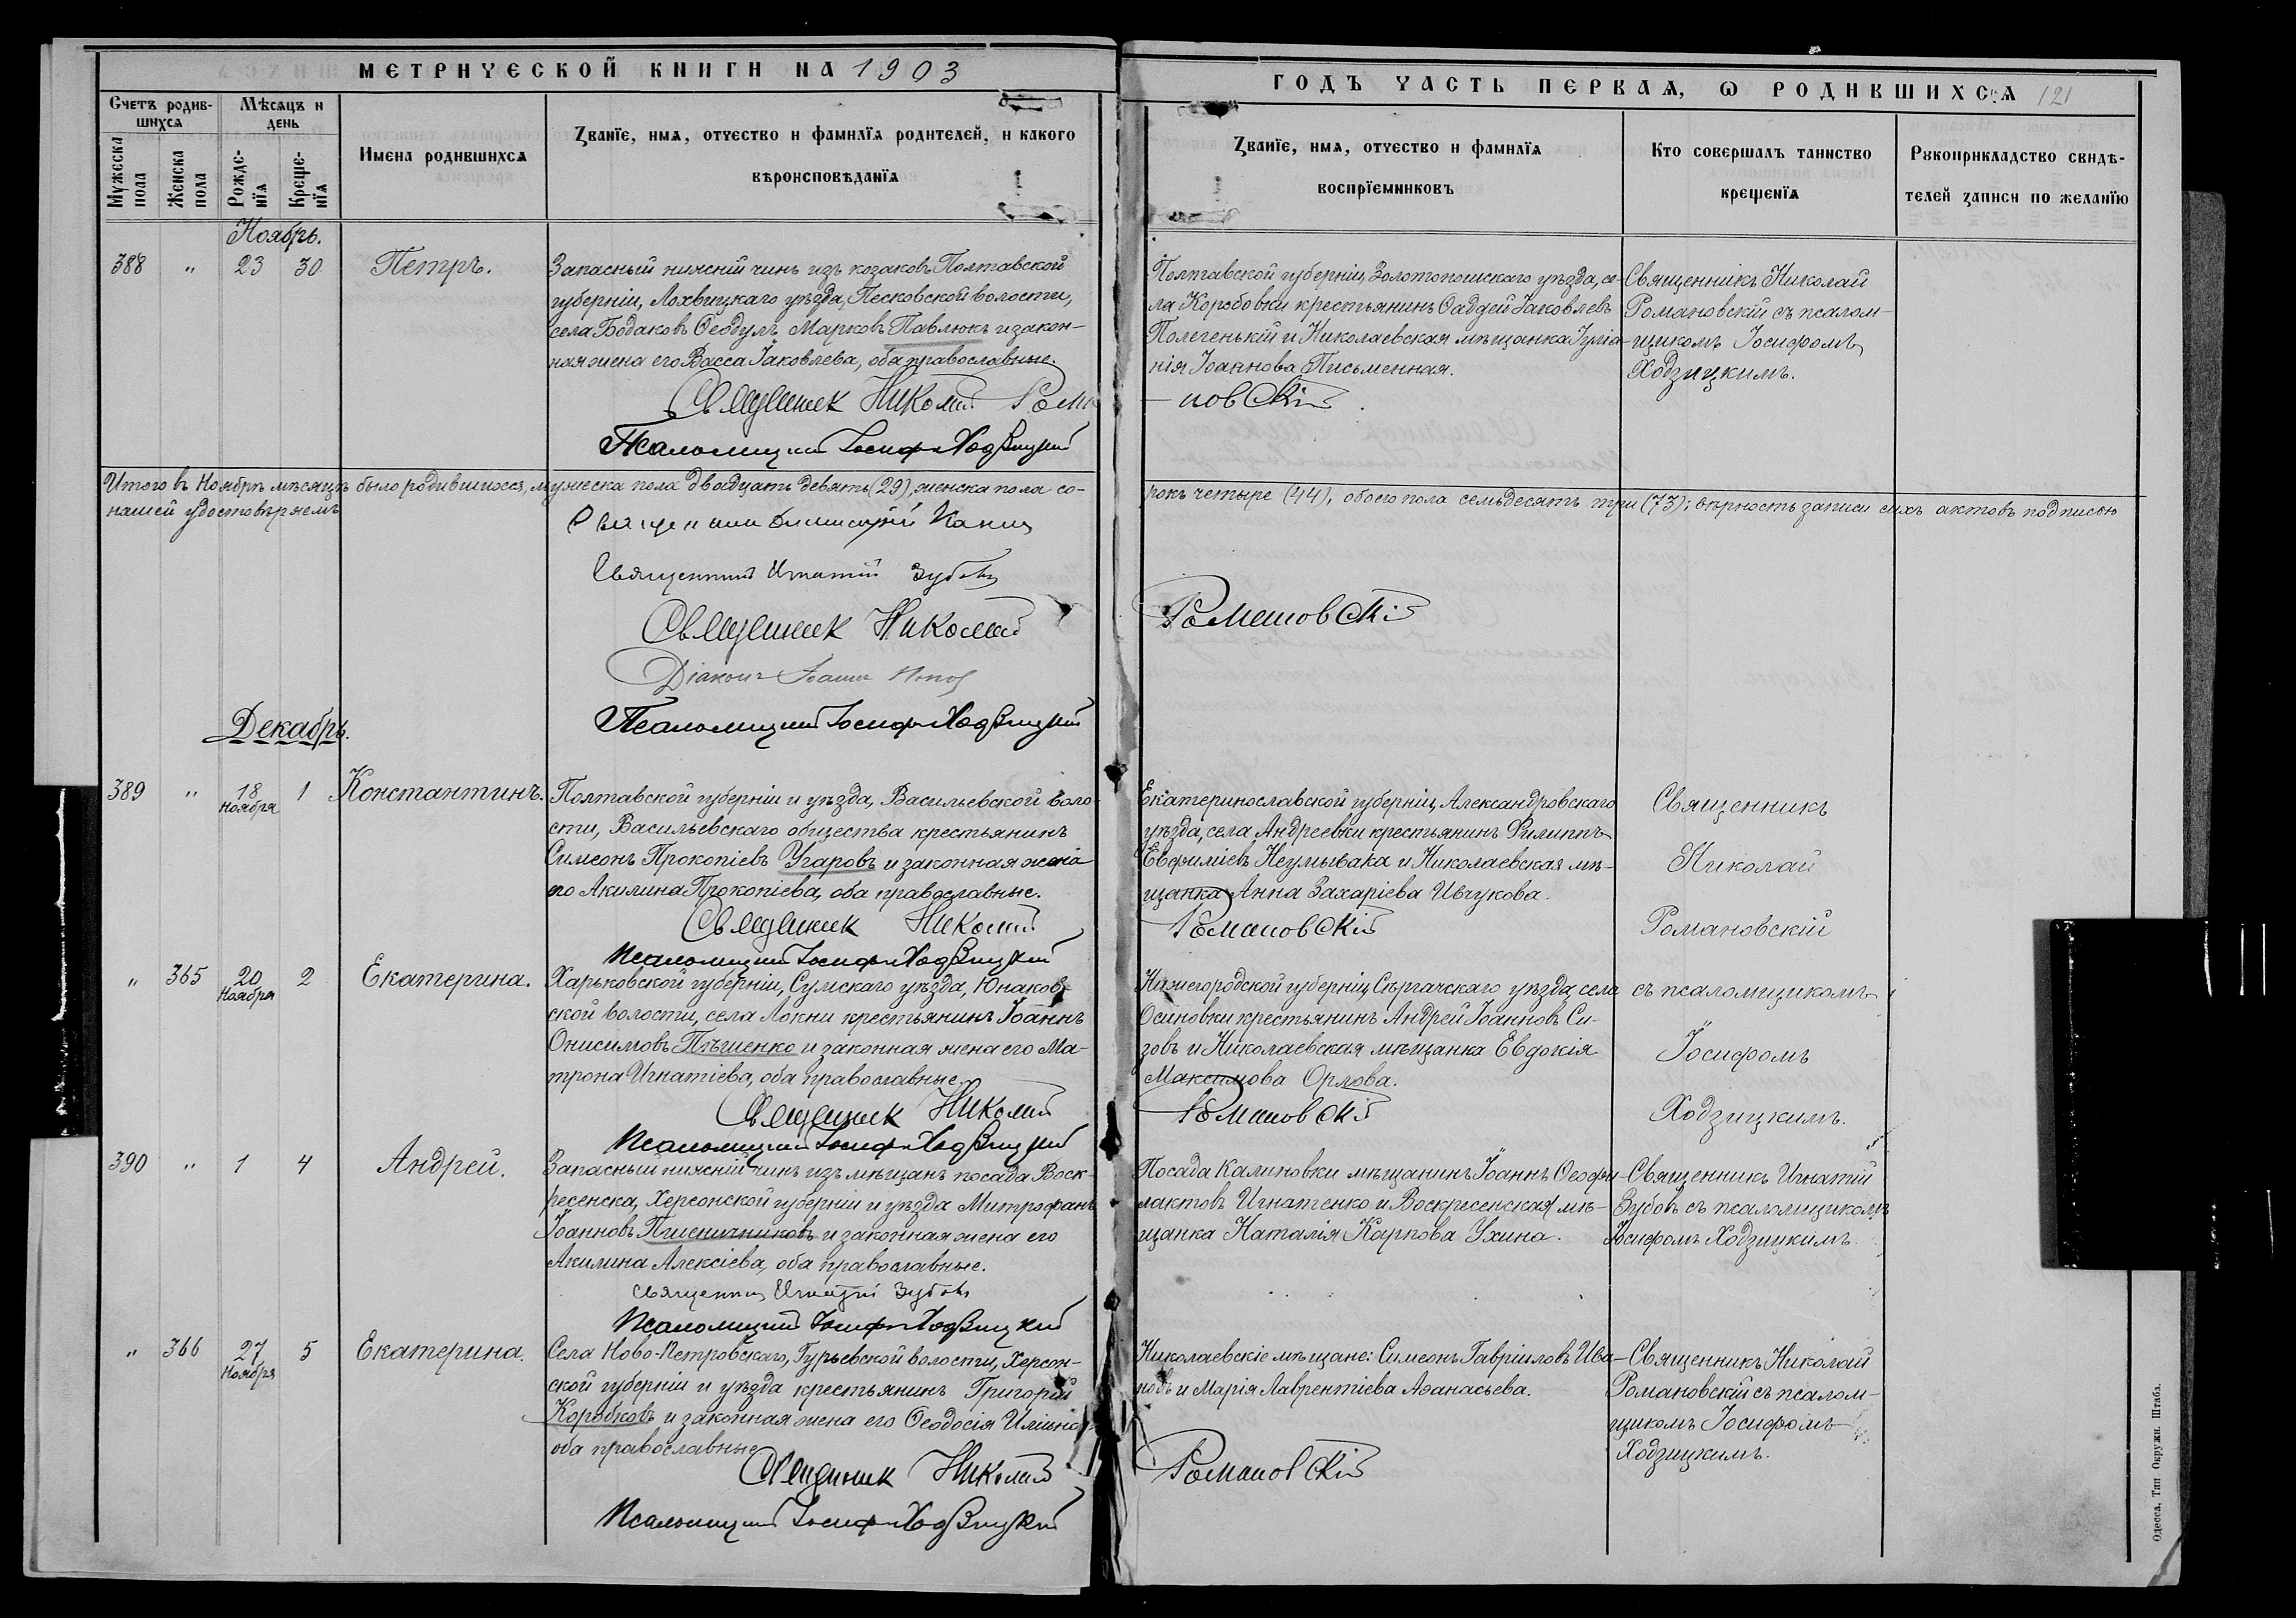 МЕТРИЧЕСКОЙ КНИГИ НА 1903
Счетъ родив-
шихся
Мѣсяцъ и
день
Мужеска
пола
Женска
пола
Рожде-
нїя
Креще-
нїя
Имена родившихся
Званїе, имя, отчество и фамилїя родителей, и какого
вѣроисповѣданїя
Ноябрь.
388 " 23 30 Петръ.
Запасный нижній чинъ изъ козаковъ Полтавской
губерніи, Лохвицкаго уѣзда, Песковской волости,
села Бодаковъ Ѳеодулъ Марковъ Павлюкъ и закон-
ная жена его Васса Іаковлева, оба православные.
Священник Николай Рома
Псаломщикъ Іосифъ Ходзицкій
Итого въ Ноябрѣ мѣсяцѣ было родившихся, мужеска пола двадцать девять (29), женска пола со-
нашей удостовѣряемъ
Священникъ Димитрій
Священникъ Игнатій Зубовъ
Священник Николай
Діаконъ Іоаннъ
Псаломщикъ Іосифъ Ходзицкій
Декабрь.
389 " 18 ноября 1 Константинъ.
Полтавской губерніи и уѣзда, Васильевской воло-
сти, Васильевскаго общества крестьянинъ
Симеонъ Прокопіевъ Угаровъ и законная жена
его Акилина Прокопіева, оба православные.
Священник Николай
Псаломщикъ Іосифъ Ходзицкій
" 365 20 Ноября 2 Екатерина.
Харьковской губерніи, Сумскаго уѣзда, Юнаков-
ской волости, села Локни крестьянинъ Іоаннъ
Онисимовъ Пѣшенко и законная жена его Ма-
трона Игнатіева, оба православные.
Священник Николай
Псаломщикъ Іосифъ Ходзицкій
390 " 1 4 Андрей.
Запасный нижній чинъ изъ мѣщанъ посада Воск-
ресенска, Херсонской губерніи и уѣзда Митрофанъ
Іоанновъ Пшеничниковъ и законная жена его
Акилина Алексіева, оба православные.
Священникъ Игнатій Зубовъ
Псаломщикъ Іосифъ Ходзицкій
" 366 27 Ноября 5 Екатерина.
Села Ново-Петровскаго, Гурьевской волости, Херсон-
ской губерніи и уѣзда крестьянинъ Григорій
Коробковъ и законная жена его Ѳеодосія Иліина
оба православные
Священник Николай
Псаломщикъ Іосифъ Ходзицкій
ГОДЪ ЧАСТЬ ПЕРВАЯ, Ѡ РОДИВШИХСЯ 121
Званїе, имя, отчество и фамилїя
воспрїемниковъ
Кто совершалъ таинство
крещенїя
Рукоприкладство свидѣ-
телей записи по желанїю
Полтавской губерніи, Золотоношскаго уѣзда, се-
ла Коробовки крестьянинъ Ѳаддей Іаковлевъ
Полегенькій и Николаевская мѣщанка Іуліа-
нія Іоаннова Письменная.
Священникъ Николай
Романовскій съ псалом-
щикомъ Іосифомъ
Ходзицкимъ.
новскій
рокъ четыре (44), обоего пола семьдесятъ три (73); вѣрность записи сихъ актовъ подписью
Романовскій
Екатеринославской губерніи, Александровскаго
уѣзда, села Андреевки крестьянинъ Филиппъ
Евфиміевъ Неумывака и Николаевская мѣ-
щанка Анна Захаріева Ивчукова.
Романовскій
Священникъ
Николай
Романовскій
Нижегородской губерніи, Сергачскаго уѣзда, села
Осиновки крестьянинъ Андрей Іоанновъ Си-
зовъ и Николаевская мѣщанка Евдокія
Максимова Орлова.
Романовскій
съ псаломщикомъ
Іосифомъ
Ходзицкимъ.
Посада Калиновки мѣщанинъ Іоаннъ Ѳеофи-
лактовъ Игнатенко и Воскресенская мѣ-
щанка Наталія Карпова Ухина.
Священникъ Игнатій
Зубовъ съ псаломщикомъ
Іосифомъ Ходзицкимъ.
Николаевскіе мѣщане: Симеонъ Гавріиловъ Ива-
новъ и Марія Лаврентіева Аѳанасьева.
Романовскій
Священникъ Николай
Романовскій съ псалом-
щикомъ Іосифомъ
Ходзицкимъ.
Одесса. Тип Окружн. Штаба.